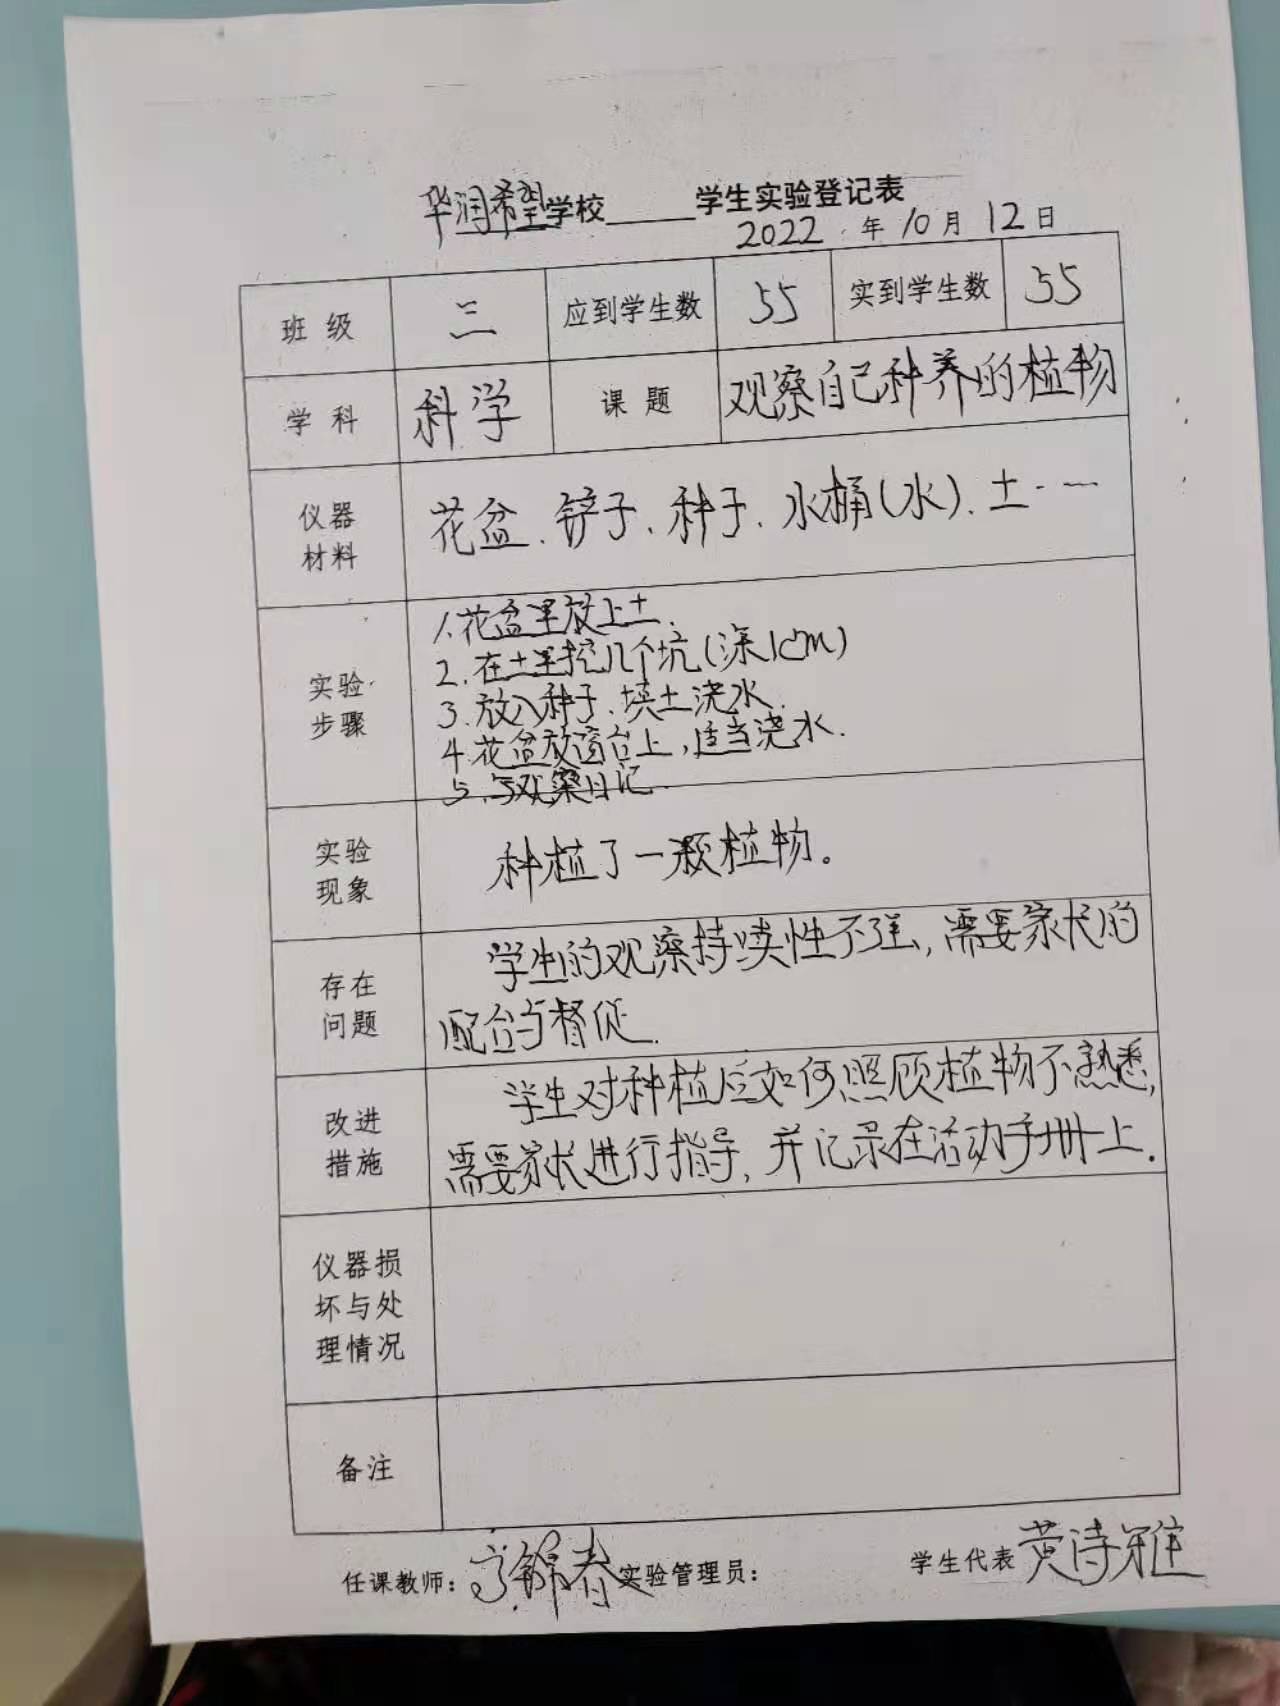 华润希望学校_____学生实验登记表
2022 年 10 月 12 日
班 级 三 应到学生数 55 实到学生数 55
学 科 科学 课 题 观察自己种养的植物
仪器
材料
花盆、铲子、种子、水桶(水)、土……
实验
步骤
1.花盆里放上土.
2.在土里挖几个坑(深1cm)
3.放入种子、填土浇水.
4.花盆放窗台上,适当浇水.
5.写观察日记.
实验
现象
种植了一颗植物。
存在
问题
学生的观察持续性不强,需要家长的
配合与督促.
改进
措施
学生对种植后如何照顾植物不熟悉,
需要家长进行指导,并记录在活动手册上.
仪器损
坏与处
理情况
备注
任课教师: 锦春 实验管理员: 学生代表 黄诗雅